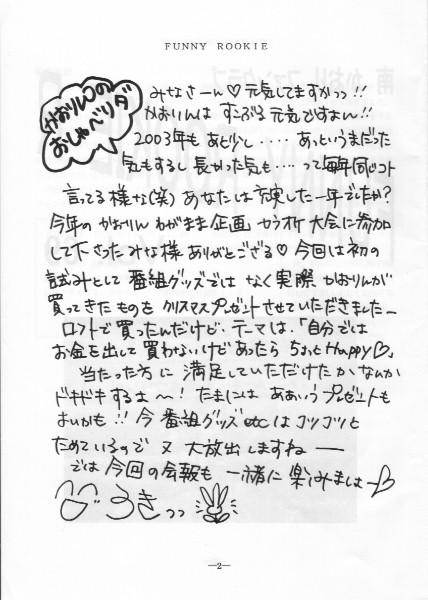 FUNNY ROOKIE
かおりんの
おしゃべりダ
みなさーん♡元気してますかっっ!!
かおりんは すこぶる元気ですよん!!
2003年も あと少し‥‥ あっというまだった
気もするし 長かった気も‥‥って毎年同じコト
言ってる様な(笑) あなたは充実した一年でしたか?
今年の かおりん わがまま企画 カラオケ大会に参加
して下さったみな様 ありがとござる♡ 今回は初の
試みとして 番組グッズでは なく実際 かおりんが
買ってきたものを クリスマスプレゼント させていただきましたー
ロフトで買ったんだけど、テーマは、「自分では
お金を出して買わないけど あったら ちょっとHappy♡」
当たった方に 満足していただけたか なんか
ドキドキするよ〜! たまには ああいうプレゼントも
おいかも!! 今 番組グッズetcは コツコツと
ためているので 又 大放出しますねー
では 今回の会報も 一緒に 楽しみましょー♡
っっ
—2—